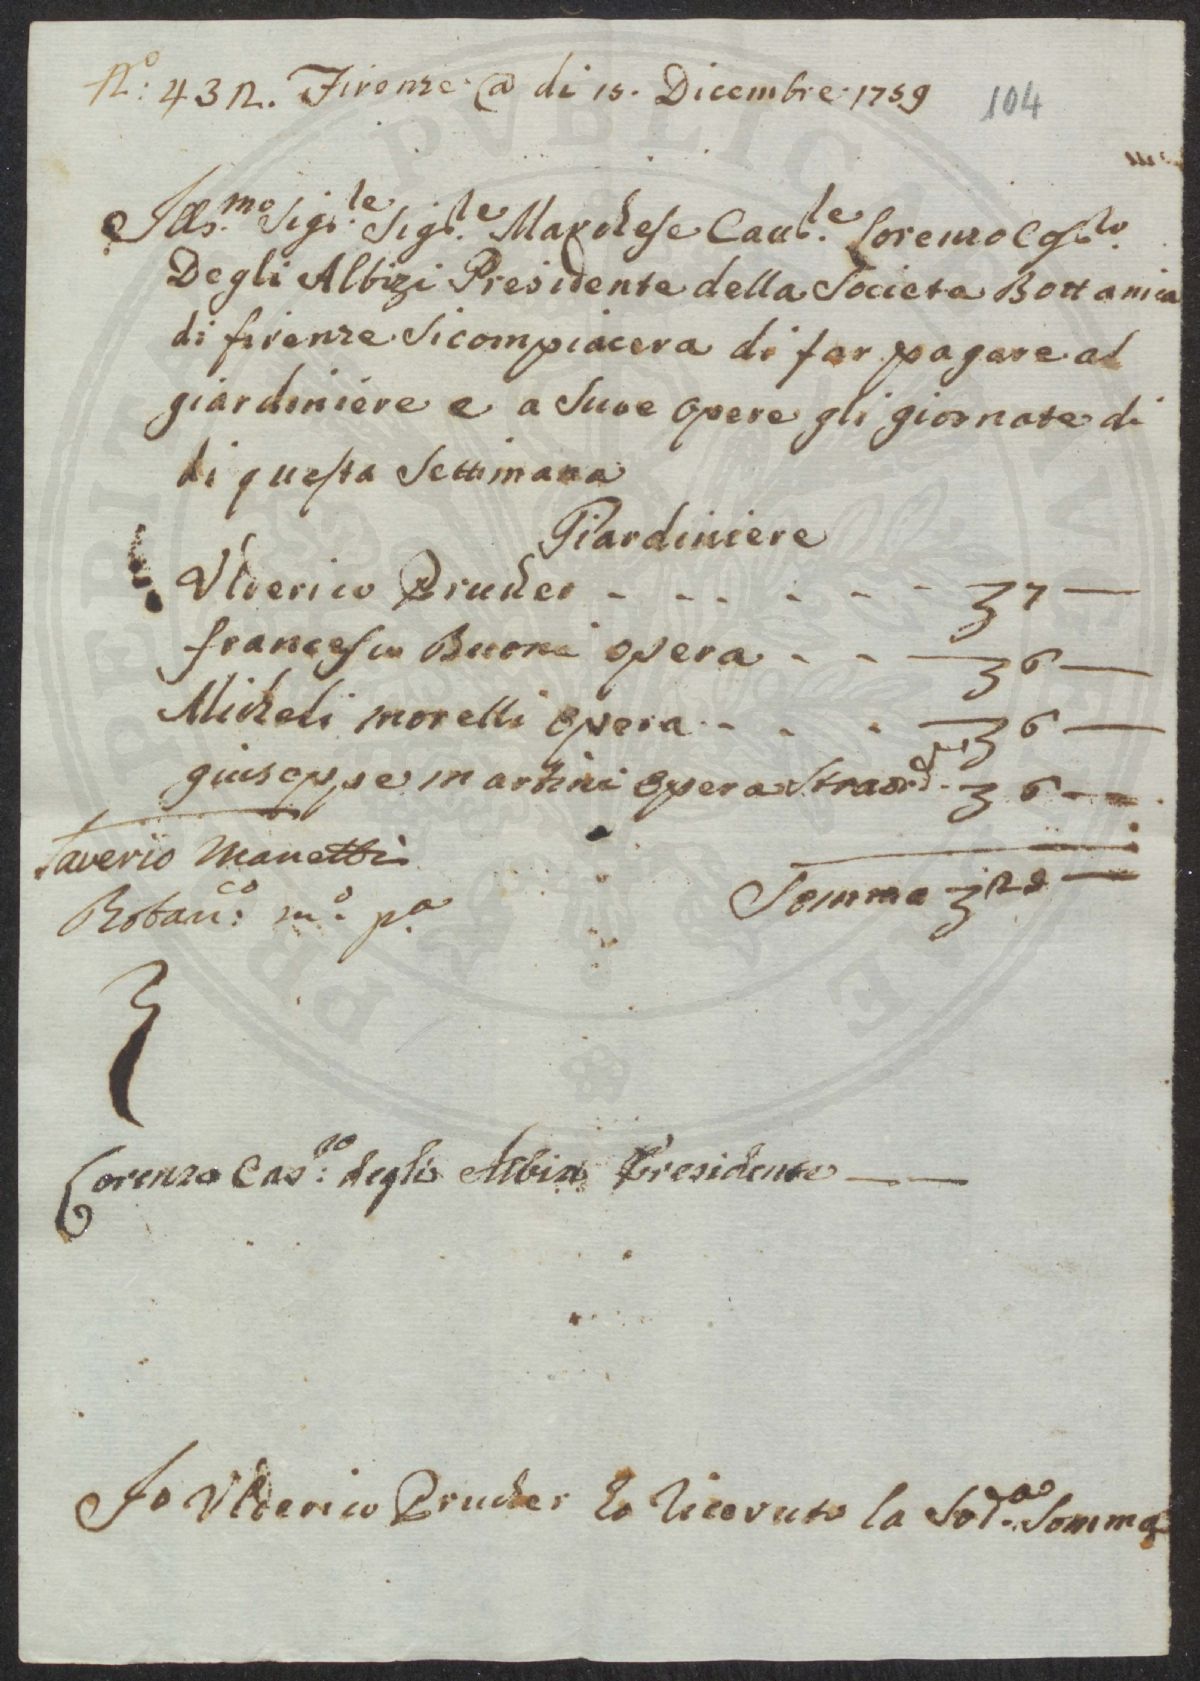 N.º: 432. Firenze @ di 15. Dicembre 1759 104
Ills.mo Sig.le Sig.le Marchese Caul.le Lorenzo
Degli Albizi Presidente della Societa Bottanica
di firenze si compiacera di far pagare al
giardiniere e a Sue opere gli giornate di
di questa Settimana
Giardiniere
Ulderico Prucher - - - - - - ʒ 7 —
francesco Buoni opera - - — ʒ 6 —
Micheli morelli opera - - - — ʒ 6 —
giuseppe martini opera Straord. ʒ 6 —
Saverio Manetti
Botan.co m.o p.a
Somma ʒ 25 —
Lorenzo Gas.ro degli Albizi Presidente — —
Io Ulderico Prucher ho ricevuto la Sod.a Somma
PVBLICAE